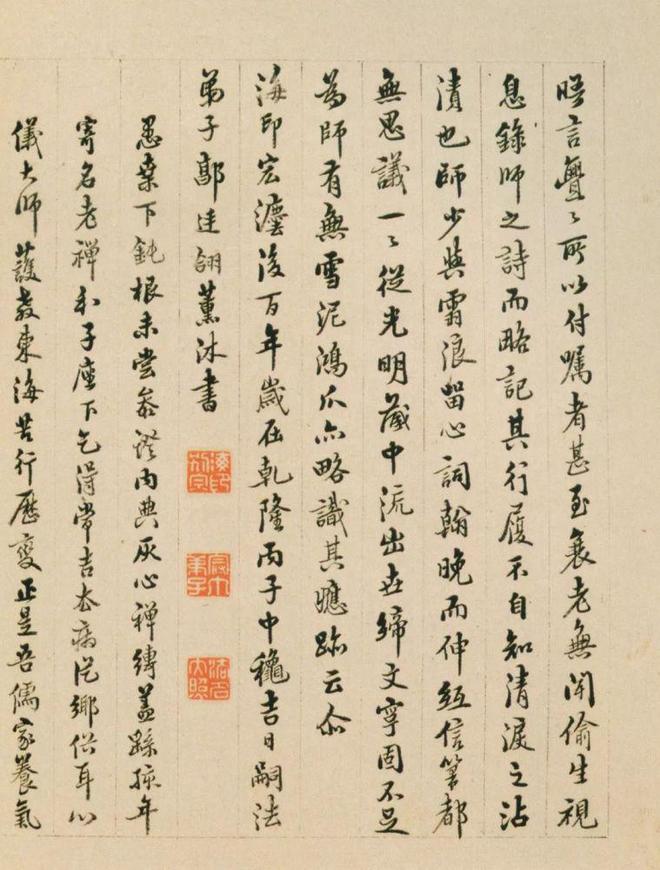 晤言亹〻所以付嘱者甚至衰老無聞偷生視
息錄師之詩而略記其行履不自知清淚之沾
漬也師少與雪浪留心詞翰晚而伸紙信筆都
無思議一〻從光明藏中流出世締文字固不足
為師有無雪泥鴻爪亦略識其應跡云尒
海印宏灋後百年歲在乾隆丙子中穐吉日嗣法
弟子鄭 翎薰沐書
愚棄下鈍根未嘗叅證内典灰心禪縛蓋縣 年
寄名老禪和子座下乞得常吉 病 鄉 耳
儀大師護教東海苦行歷變正是吾儒家養氣
弟子